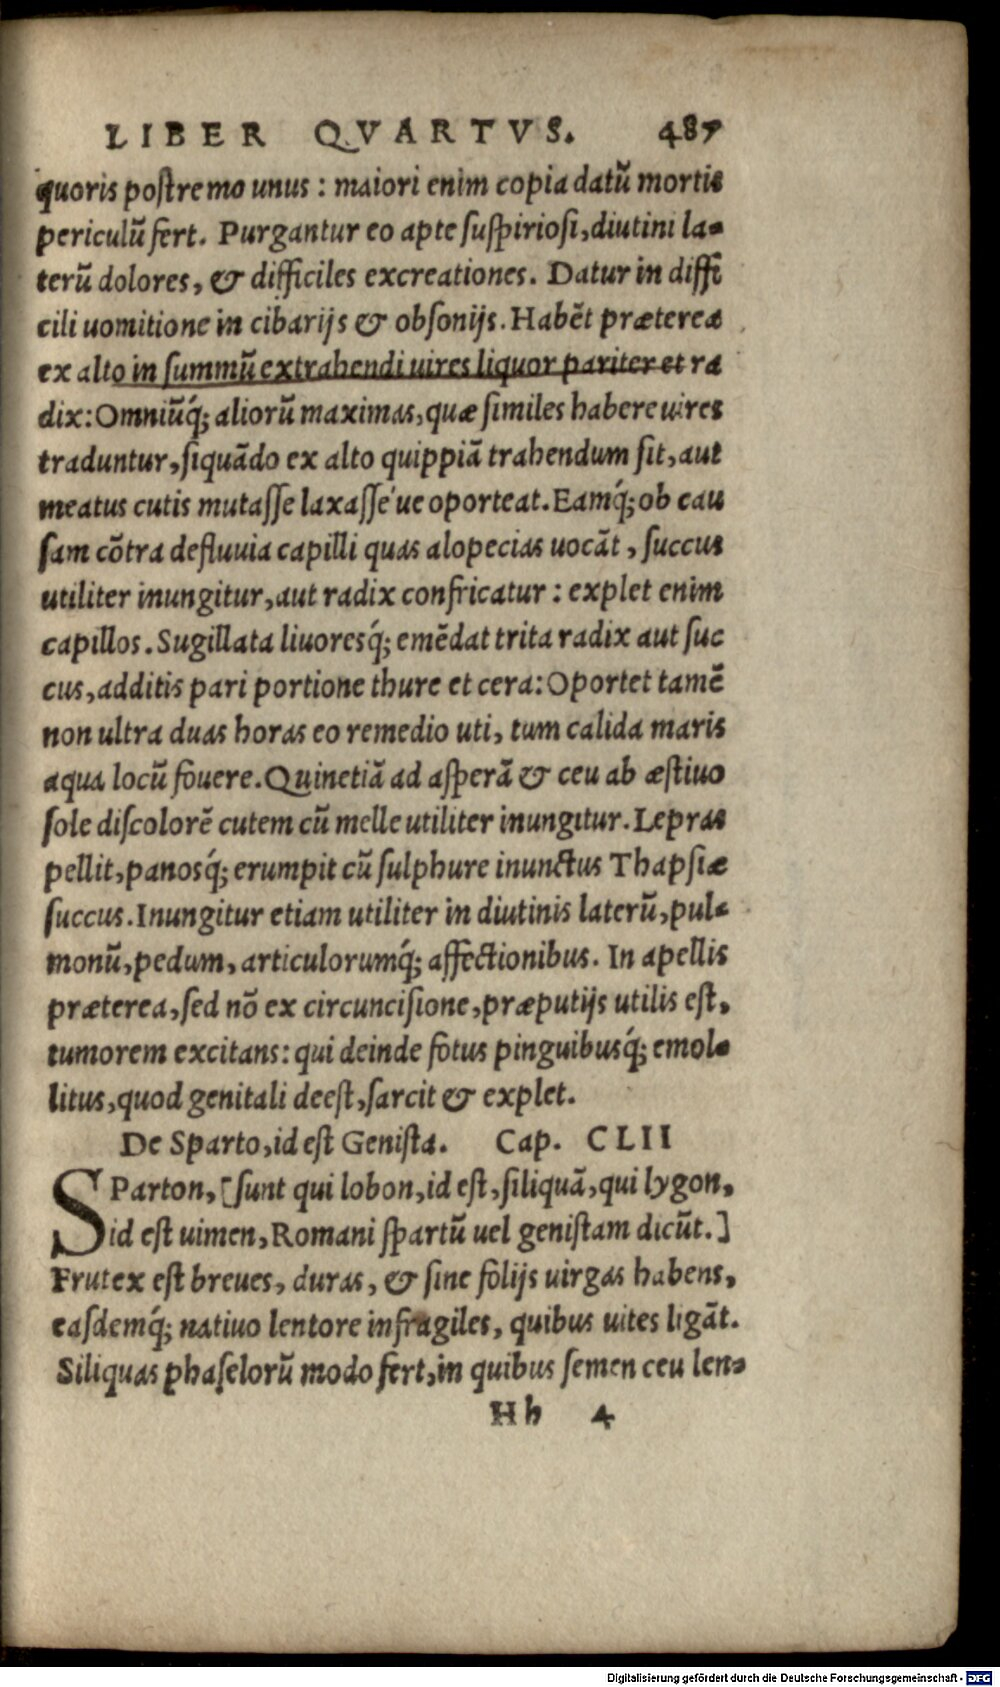 LIBER QVARTVS. 487
quoris postremo unus : maiori enim copia datũ mortis
periculũ fert. Purgantur eo apte suspiriosi, diutini la-
terũ dolores, & difficiles excreationes. Datur in diffi
cili uomitione in cibarijs & obsonijs. Habẽt præterea
ex alto in summũ extrahendi uires liquor pariter et ra
dix: Omniũq́; aliorũ maximas, quæ similes habere uires
traduntur, siquãdo ex alto quippiã trahendum sit, aut
meatus cutis mutasse laxasse´ue oporteat. Eamq́; ob cau
sam cõtra defluuia capilli quas alopecias uocãt, succus
utiliter inungitur, aut radix confricatur : explet enim
capillos. Sugillata liuoresq́; emẽdat trita radix aut suc
cus, additis pari portione thure et cera: Oportet tamẽ
non ultra duas horas eo remedio uti, tum calida maris
aqua locũ fouere. Quinetiã ad asperã & ceu ab æstiuo
sole discolorẽ cutem cũ melle utiliter inungitur. Lepras
pellit, panosq́; erumpit cũ sulphure inunctus Thapsiæ
succus. Inungitur etiam utiliter in diutinis laterũ, pul-
monũ, pedum, articulorumq́; affectionibus. In apellis
præterea, sed nõ ex circuncisione, præputijs utilis est,
tumorem excitans: qui deinde fotus pinguibusq́; emol-
litus, quod genitali deest, sarcit & explet.
De Sparto, id est Genista. Cap. CLII
SParton, [sunt qui lobon, id est, siliquã, qui lygon,
id est uimen, Romani spartũ uel genistam dicũt.]
Frutex est breues, duras, & sine folijs uirgas habens,
easdemq́; natiuo lentore infragiles, quibus uites ligãt.
Siliquas phaselorũ modo fert, in quibus semen ceu len-
Hh 4
Digitalisierung gefördert durch die Deutsche Forschungsgemeinschaft - DFG